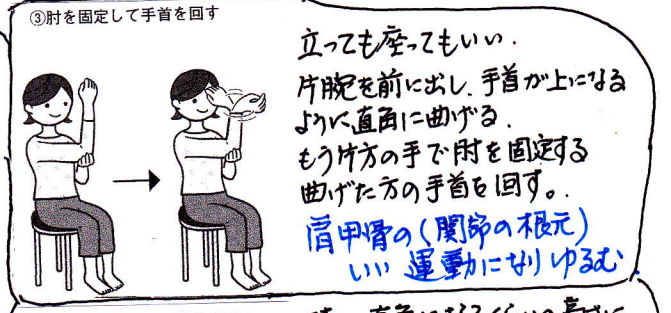 ③肘を固定して手首を回す
立っても座ってもいい.
片腕を前に出し、手首が上になる
ように直角に曲げる.
もう片方の手で肘を固定する
曲げた方の手首を回す。.
肩甲骨の(関節の根元)
いい 運動になり ゆるむ